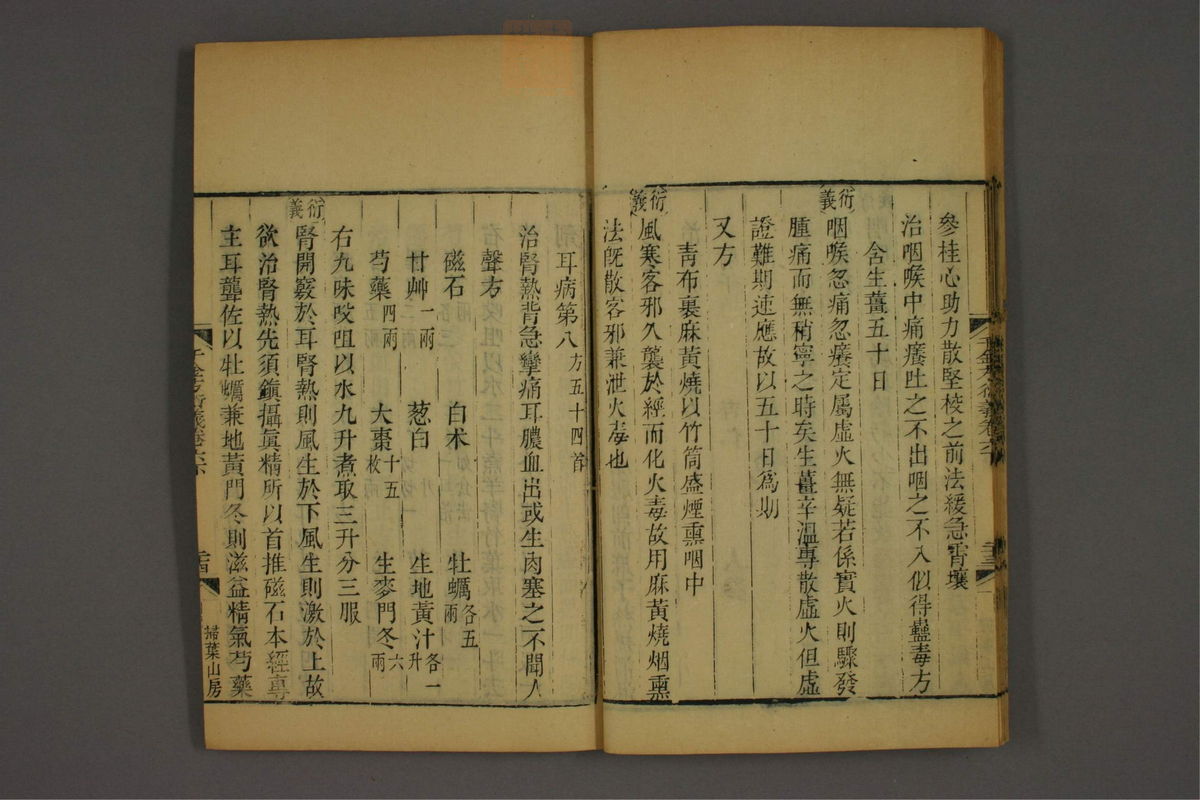 參桂心助力散堅校之前法緩急霄壤
治咽喉中痛癢吐之不出咽之不入似得蠱毒方
含生薑五十日
衍義
咽喉忽痛忽癢定屬虛火無疑若係實火則驟發
腫痛而無稍寧之時矣生薑辛溫專散虛火但虛
證難期速應故以五十日為期
又方
靑布裹麻黃燒以竹筒盛煙熏咽中
衍義
風寒客邪久襲於經而化火毒故用麻黃燒烟熏
法旣散客邪兼泄火毒也
耳病第八方五十四首
治腎熱背急攣痛耳膿血出或生肉塞之不聞人
聲方
磁石 白术 牡蠣各五兩
甘艸一兩 葱白 生地黃汁各一升
芍藥四兩 大棗十五枚 生麥門冬六兩
右九味㕮咀以水九升煮取三升分三服
衍義
腎開竅於耳腎熱則風生於下風生則激於上故
欲治腎熱先須鎭攝眞精所以首推磁石本經專
主耳聾佐以牡蠣兼地黃門冬則滋益精氣芍藥
千金方衍義卷六下
二十四
掃葉山房